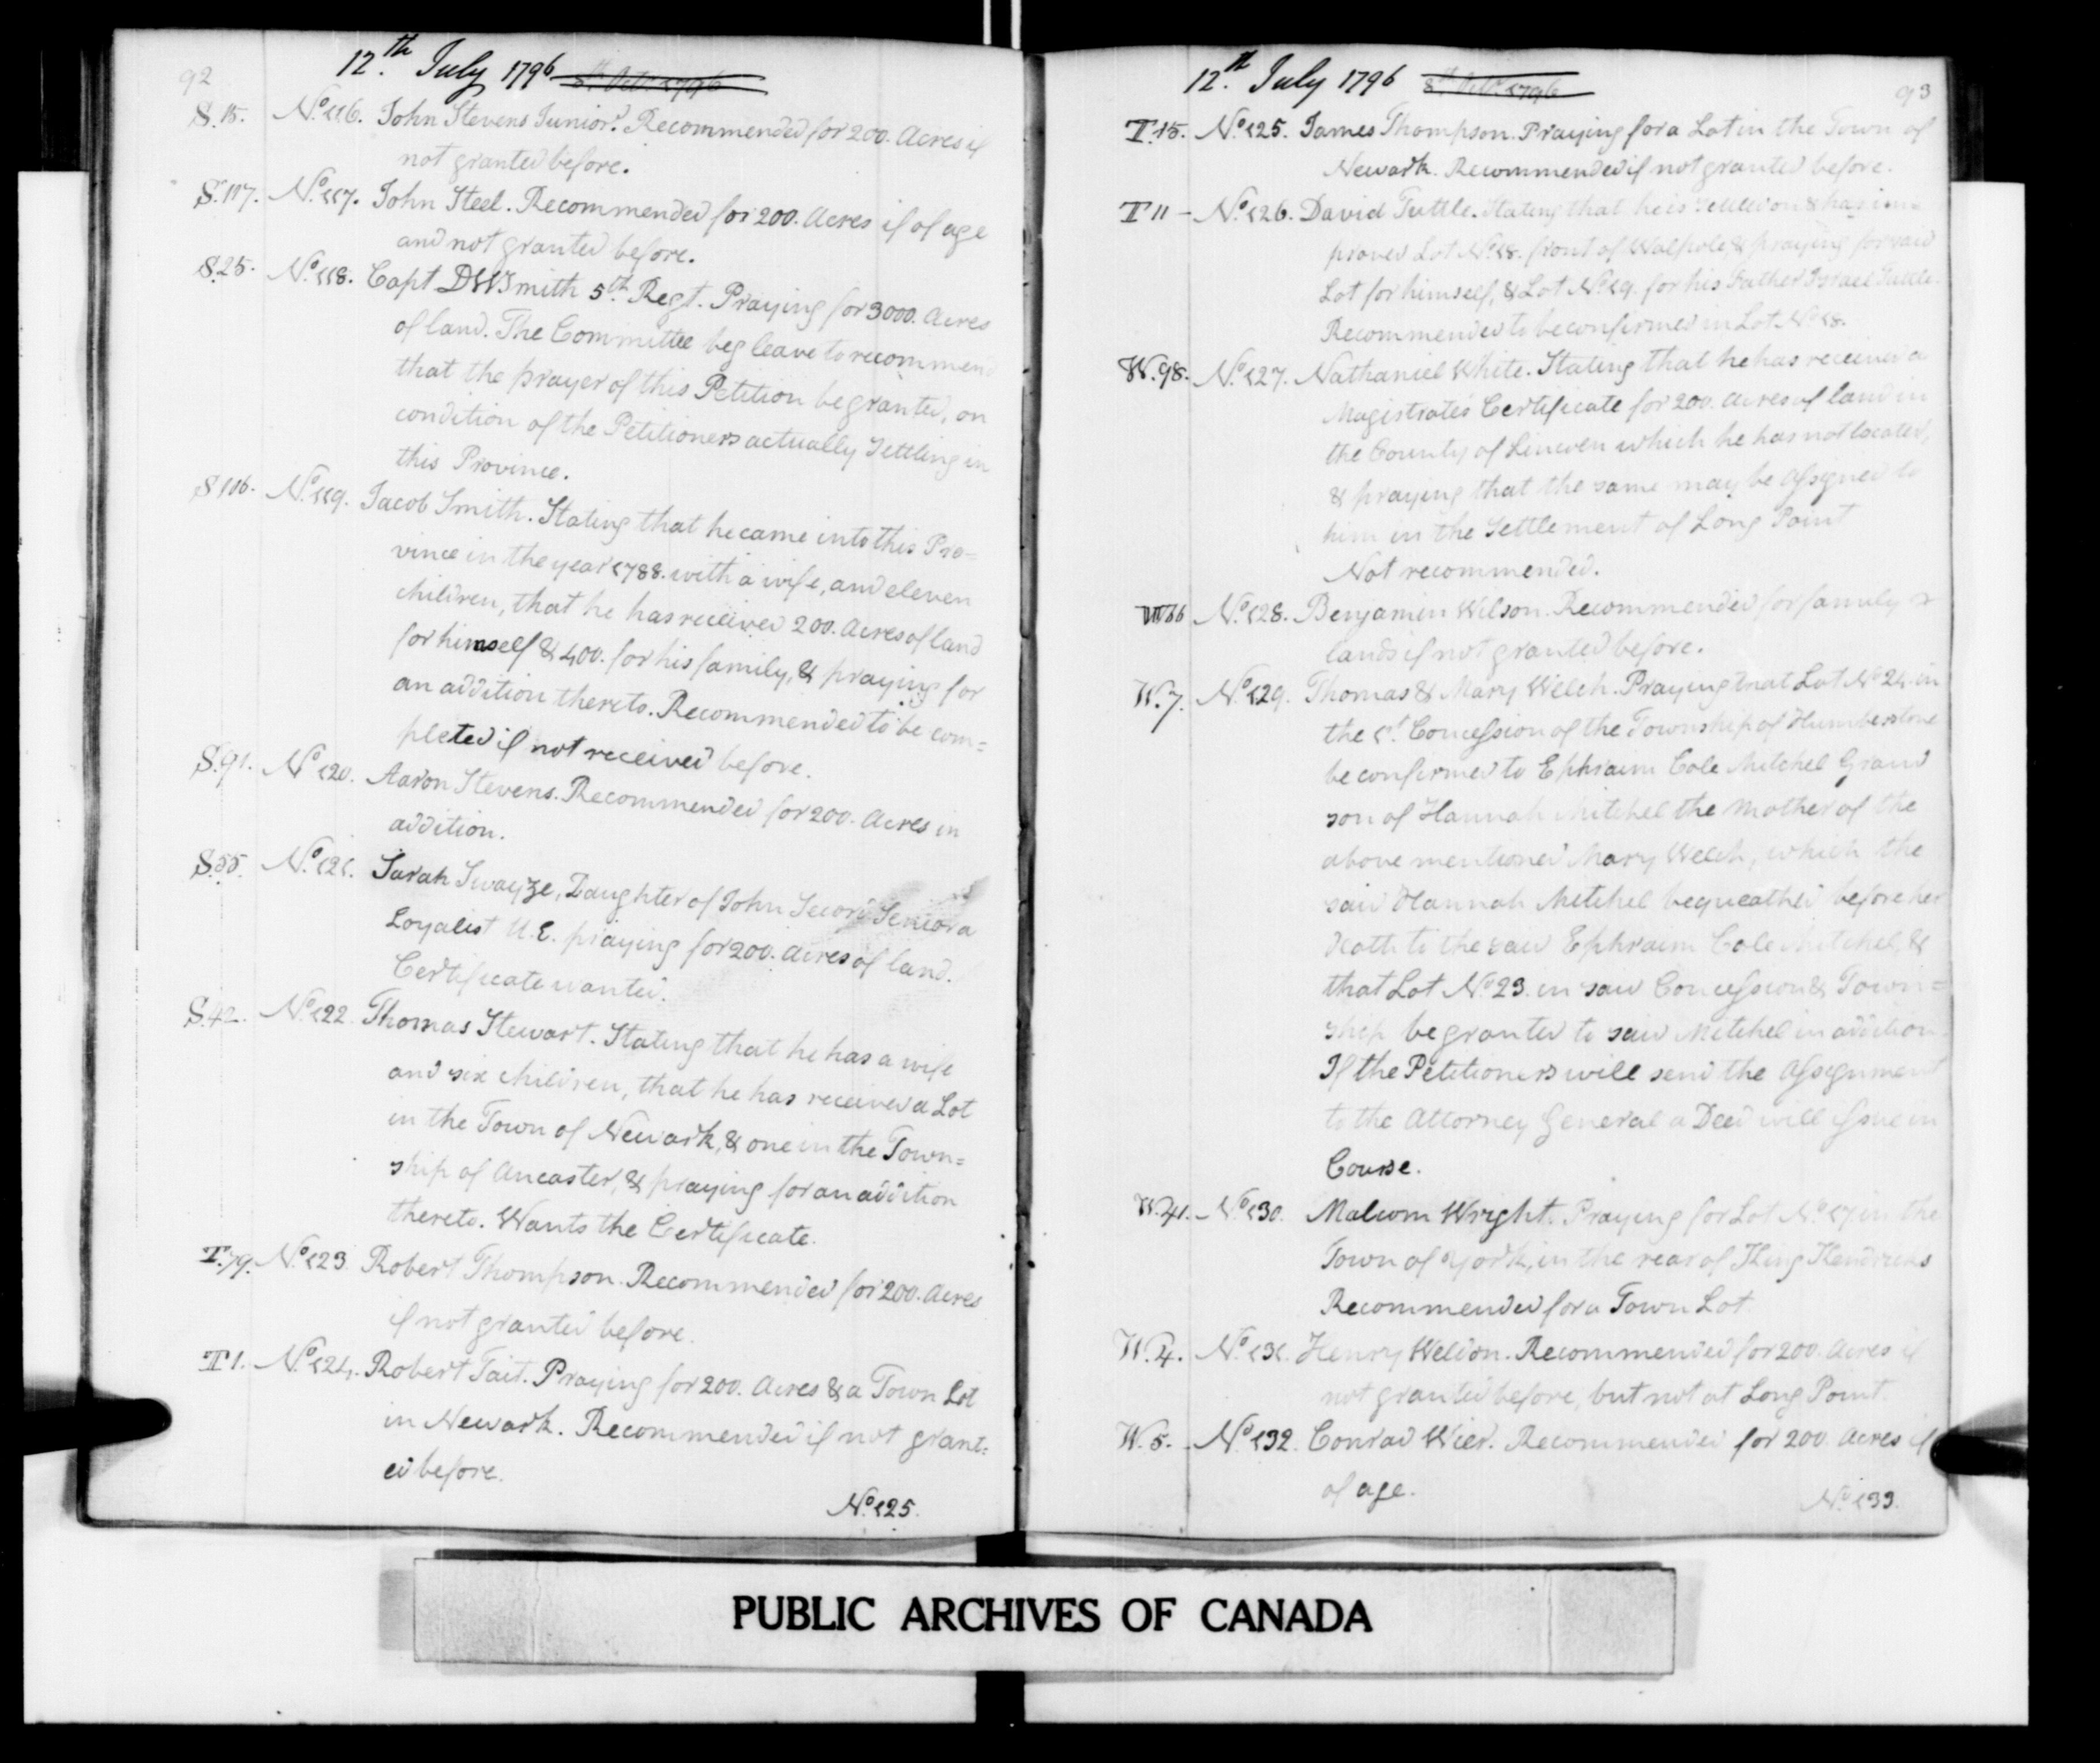 92
12.th July 1796 8th Octr 1796
S.15. No. 116. John Stevens Junior. Recommended for 200. Acres if
not granted before.
S.117. No. 117. John Steel. Recommended for 200. Acres if of age
and not granted before.
S.25. No. 118. Capt DWSmith 5th Regt. Praying for 3000. Acres
of land. The Committee beg leave to recommend
that the prayer of this Petition be granted, on
condition of the Petitioners actually Settling in
this Province.
S 106. No. 119. Jacob Smith. Stating that he came into this Pro=
vince in the year 1788. with a wife, and eleven
children, that he has received 200. Acres of land
for himself & 400. for his family, & praying for
an addition thereto. Recommended to be com=
pleted if not received before.
S.91. No 120. Aaron Stevens. Recommended for 200. Acres in
addition.
S.55. No. 121. Sarah Swayze, Daughter of John Secord Senior a
Loyalist U.E. praying for 200. Acres of land.
Certificate wanted.
S.42. No. 122. Thomas Stewart. Stating that he has a wife
and six children, that he has received a Lot
in the Town of Newark, & one in the Town=
ship of Ancaster, & praying for an addition
thereto. Wants the Certificate.
T.79. No. 123. Robert Thompson. Recommended for 200. Acres
if not granted before.
T 1. No. 124. Robert Tait. Praying for 200. Acres & a Town Lot
in Newark. Recommended if not grant=
ed before.
No. 125.
93
12.th July 1796 8th Octr 1796
T.15. No. 125. James Thompson. Praying for a Lot in the Town of
Newark. Recommended if not granted before.
T 11 - No. 126. David Tuttle. Stating that he is settled on & has im=
proved Lot No. 18. front of Walpole, & praying for said
Lot for himself, & Lot No. 19. for his Father Israel Tuttle.
Recommended to be confirmed in Lot No 18.
W.98. No. 127. Nathaniel White. Stating that he has received a
Magistrate's Certificate for 200. acres of land in
the County of Lincoln which he has not located,
& praying that the same may be assigned to
him in the Settlement of Long Point
Not recommended.
No. 128. Benjamin Wilson. Recommended for family
lands if not granted before.
W.7. No. 129. Thomas & Mary Welch. Praying that Lot No 24. in
the 1st. Concession of the Township of Humberstone
be confirmed to Ephraim Cole Mitchel Grand
son of Hannah Mitchel the Mother of the
above mentioned Mary Welch, which the
said Hannah Mitchel bequeathed before her
death to the said Ephraim Cole Mitchel, &
that Lot No 23. in said Concession & Town=
ship be granted to said Mitchel in addition.
If the Petitioners will send the Assignment
to the Attorney General a Deed will issue in
Course.
W.41. No. 130. Malcom Wright. Praying for Lot No. 17. in the
Town of York, in the rear of King Kendricks
Recommended for a Town Lot.
W.4. No. 131. Henry Weldon. Recommended for 200. Acres if
not granted before, but not at Long Point.
W.5. No. 132. Conrad Wier. Recommended for 200. Acres if
of age.
No. 133.
PUBLIC ARCHIVES OF CANADA